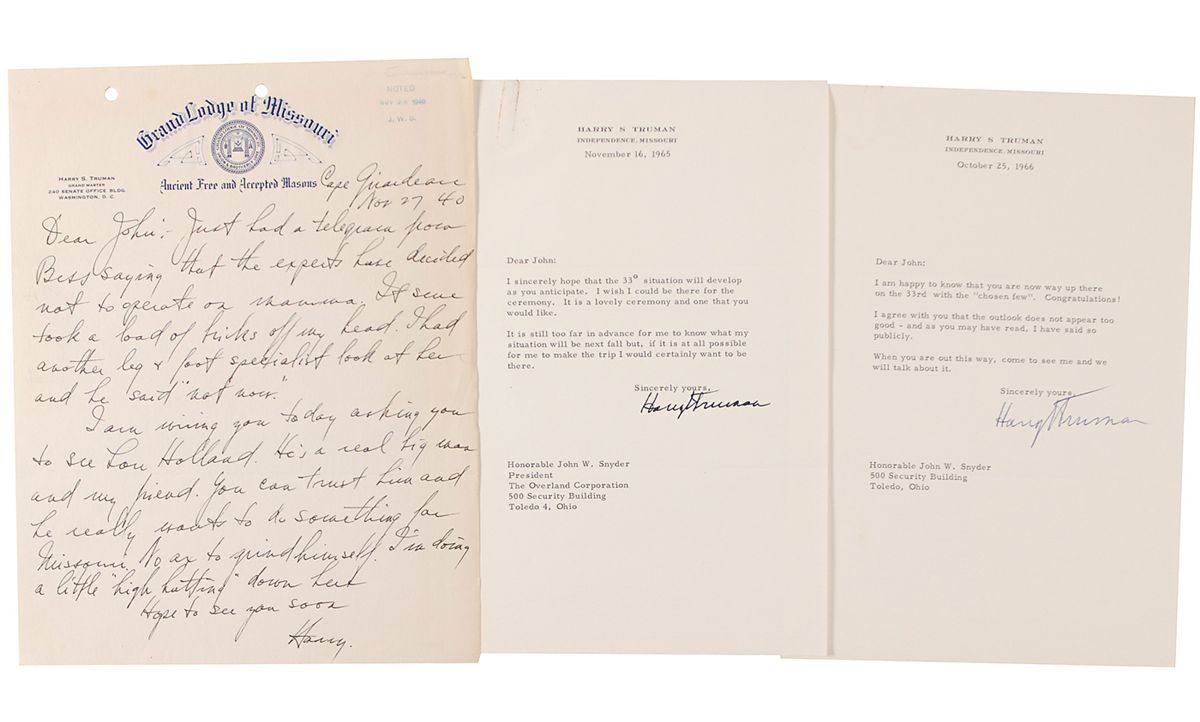 NOTED
J. W. S.
Grand Lodge of Missouri
HARRY S. TRUMAN
GRAND MASTER
240 SENATE OFFICE BLDG.
WASHINGTON, D. C.
Ancient Free and Accepted Masons
Cape Girardeau
Nov 27 40
Dear John:- Just had a telegram from
Bess saying that the experts have decided
not to operate on mamma. It sure
took a load of bricks off my head. I had
another leg & foot specialist look at her
and he said "not now."
I am wiring you today asking you
to see Lou Holland. He's a real big man
and my friend. You can trust him and
he really wants to do something for
Missouri. No ax to grind himself. I'm doing
a little "high hatting" down here
Hope to see you soon
Harry.
HARRY S TRUMAN
INDEPENDENCE, MISSOURI
November 16, 1965
Dear John:
I sincerely hope that the 33° situation will develop
as you anticipate. I wish I could be there for the
ceremony. It is a lovely ceremony and one that you
would like.
It is still too far in advance for me to know what my
situation will be next fall but, if it is at all possible
for me to make the trip I would certainly want to be
there.
Sincerely yours,
Harry Truman
Honorable John W. Snyder
President
The Overland Corporation
500 Security Building
Toledo 4, Ohio
HARRY S TRUMAN
INDEPENDENCE, MISSOURI
October 25, 1966
Dear John:
I am happy to know that you are now way up there
on the 33rd with the "chosen few". Congratulations!
I agree with you that the outlook does not appear too
good - and as you may have read, I have said so
publicly.
When you are out this way, come to see me and we
will talk about it.
Sincerely yours,
Harry Truman
Honorable John W. Snyder
500 Security Building
Toledo, Ohio